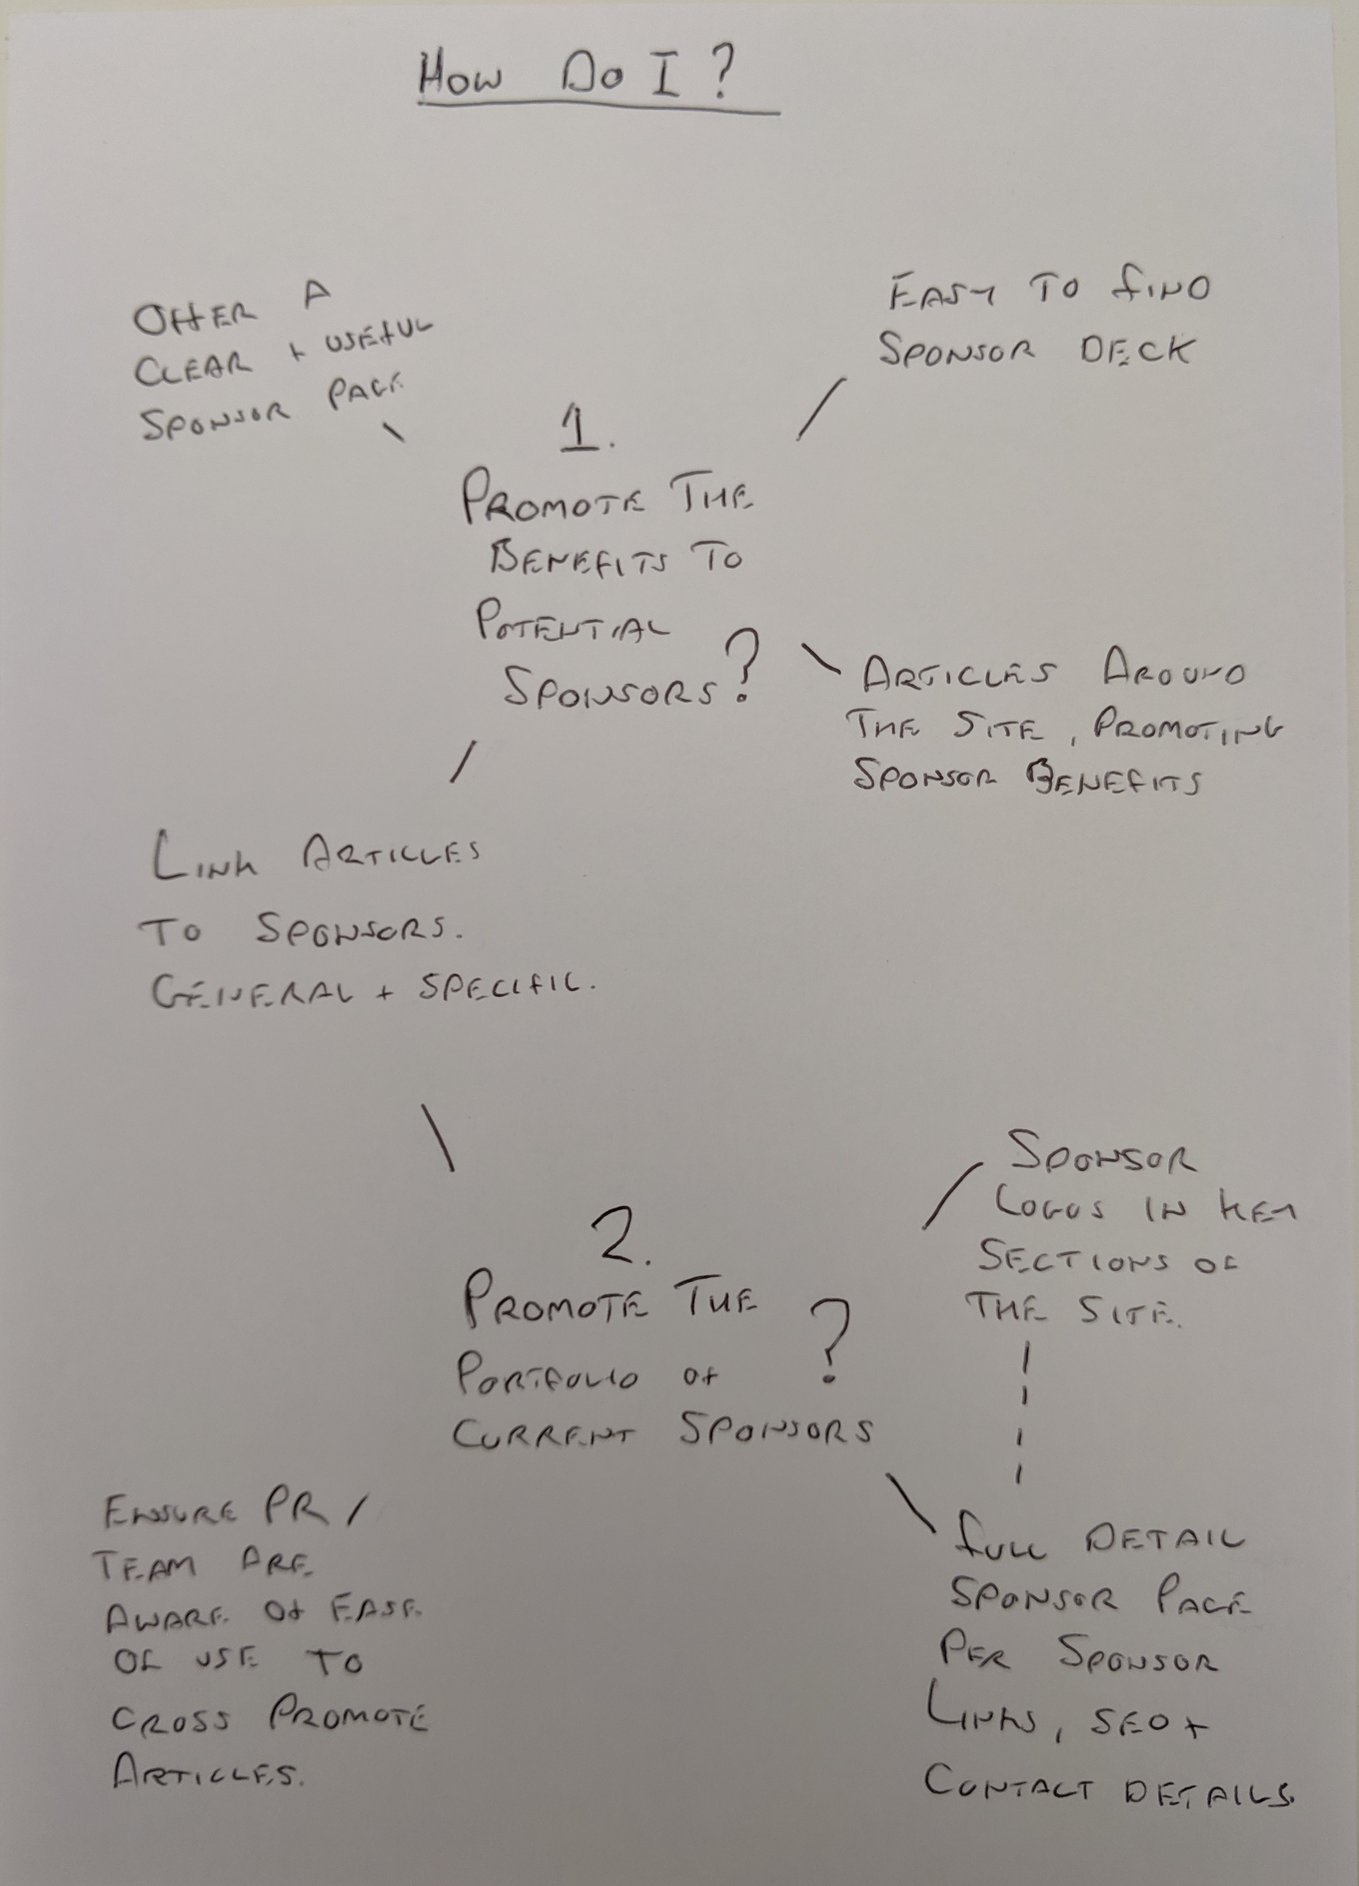 How Do I?
OFFER A
CLEAR + USEFUL
SPONSOR PAGE
EASY TO FIND
SPONSOR DECK
1.
PROMOTE THE
BENEFITS TO
POTENTIAL
SPONSORS?
ARTICLES AROUND
THE SITE, PROMOTING
SPONSOR BENEFITS
LINK ARTICLES
TO SPONSORS.
GENERAL + SPECIFIC.
2.
PROMOTE THE
PORTFOLIO OF ?
CURRENT SPONSORS
SPONSOR
LOGOS IN KEY
SECTIONS OF
THE SITE.
ENSURE PR /
TEAM ARE
AWARE OF EASE
OF USE TO
CROSS PROMOTE
ARTICLES.
FULL DETAIL
SPONSOR PAGE
PER SPONSOR
LINKS, SEO +
CONTACT DETAILS.